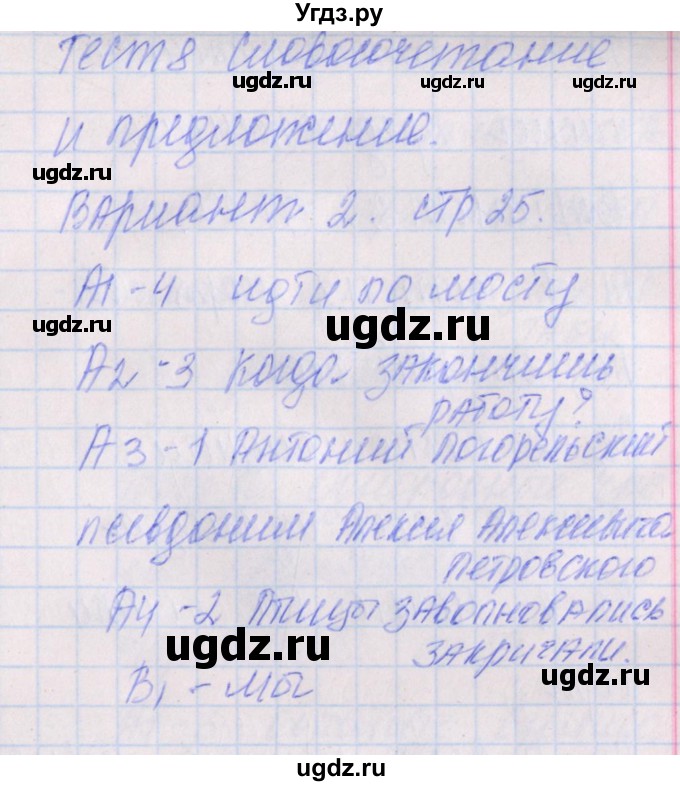 Угдз.ру
Тест 8 Словосочетание
ugdz.ru ugdz.ru
и предложение.
ugdz.ru
Вариант 2. стр 25.
А1 - 4 идти по мосту
ugdz.ru ugdz.ru
А2 - 3 Когда закончишь
работу?
А3 - 1 Антоний Погорельский
псевдоним Алексея Алексеевича
Петровского
А4 - 2 Птицы заволновались
ugdz.ru закричали.
ugdz.ru
В1 - Мы
ugdz.ru